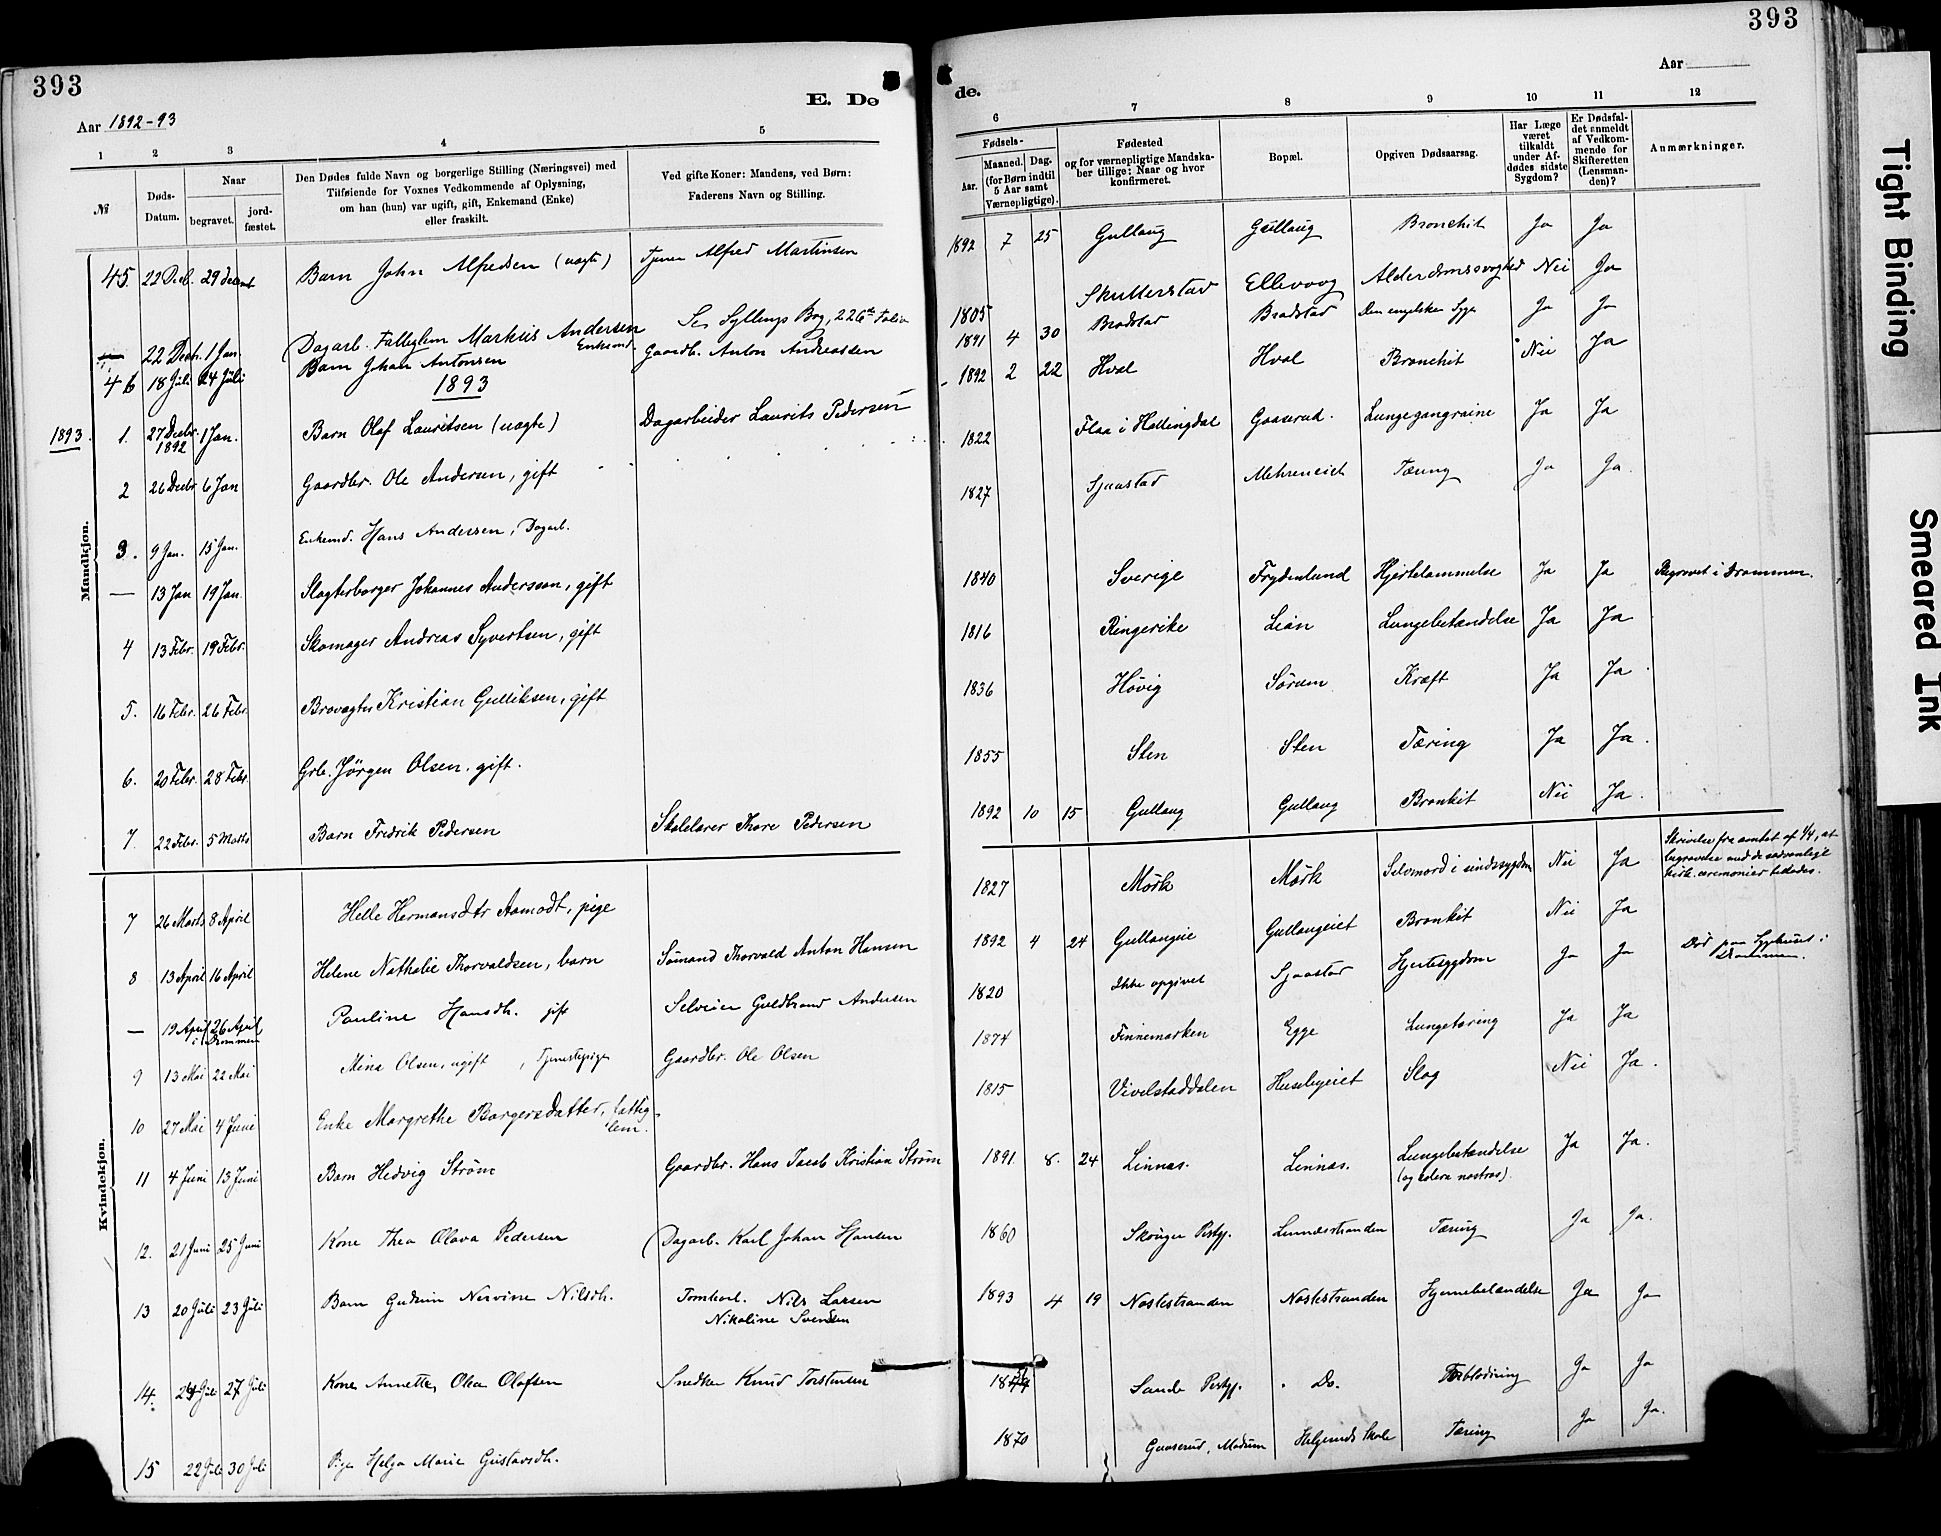 393
Aar 1892-93
E. Dø
1 2 3 4 5
№
Døds-Datum.
Naar
begravet.
jord-fæstet.
Den Dødes fulde Navn og borgerlige Stilling (Næringsvei) med
Tilføiende for Voxnes Vedkommende af Oplysning,
om han (hun) var ugift, gift, Enkemand (Enke)
eller fraskilt.
Ved gifte Koner: Mandens, ved Børn:
Faderens Navn og Stilling.
Mandkjøn.
45. 22 Decb. 29 Decemb Barn John Alfredsen (uægte) Tjener Alfred Martinsen
22 Decbr. 1 Jan. Dagarb. Fattiglem Markus Andersen Enkemd. Se Syllings Bog, 226de Folio
46 18 Juli 24 Juli Barn Johan Antonsen Gaardb. Anton Andreassen
1893
1893. 1. 27 Decbr. 1892 1 Jan. Barn Olaf Lauritsen (uægte) Dagarbeider Laurits Pedersen
2 26 Decbr 6 Jan Gaardbr. Ole Andersen, gift
3. 9 Jan. 15 Jan. Enkemd. Hans Andersen, Dagarb.
— 13 Jan 19 Jan. Slagterborger Johannes Andersson, gift
4 13 Febr. 19 Febr. Skomager Andreas Syvertsen, gift
5. 16 Febr. 26 Febr. Brovagter Kristian Gulliksen, gift
6. 20 Febr. 28 Febr. Grb. Jörgen Olsen. gift.
7. 22 Febr. 5 Marts Barn Fredrik Pedersen Skolelærer Thore Pedersen
Kvindekjøn.
7 26 Marts 8 April Helle Hermansdtr Aamodt, pige
8 13 April 16 April Helene Nathalie Thorvaldsen, barn Sömand Thorvald Anton Hansen
— 19 April 26 April i Drammen Pauline Hansdtr. gift Selveier Guldbrand Andersen
9 13 Mai 22 Mai Mina Olsen, ugift, Tjenestepige Gaardbr. Ole Olsen
10 27 Mai 4 Juni Enke Margrethe Borgersdatter, fattiglem.
11 4 Juni 13 Juni Barn Hedvig Strøm Gaardbr. Hans Jacob Kristian Strøm
12. 21 Juni 25 Juni Kone Thea Olava Pedersen Dagarb. Karl Johan Hansen
13 20 Juli 23 Juli Barn Gudrun Nilsdtr. Tomtearb. Nils Larsen
Nikoline Svendsen
14. 24 Juli 27 Juli Kone Annette Olea Olafsen Snedker Knud Torstensen
15 22 Juli 30 Juli Pige Helga Marie Gustavsdtr.
393
Aar
de.
6 7 8 9 10 11 12
Fødsels-
Aar.
Maaned. Dag.
(for Børn indtil
5 Aar samt
Værnepligtige).
Fødested
og for værnepligtige Mandska-
ber tillige: Naar og hvor
konfirmeret.
Bopæl.
Opgiven Dødsaarsag.
Har Læge
været
tilkaldt
under Af-
dødes sidste
Sygdom?
Er Dødsfal-
det anmeldt
af Vedkom-
mende for
Skifteretten
(Lensman-
den)?
Anmærkninger.
1892 7 25 Gullaug Gullaug Bronchit Ja Ja
1805 Skutterstad Ellevoog Alderdomssvaghed Nei Ja
1891 4 30 Bradstad Bradstad Den engelske Syge Ja Ja
1892 2 22 Hval Hval Bronchit Nei Ja
1822 Flaa i Hallingdal Gaaserud. Lungegangræne Ja Ja
1827 Sjaastad Mehreneiet Tæring Ja Ja.
1840 Sverige Frydenlund Hjertelammelse Ja Ja Begravet i Drammen.
1816 Ringerike Lian Lungebetændelse Ja Ja
1836 Hövig Sörum Kræft Ja Ja
1855 Sten Sten Tæring Ja Ja.
1892 10 15 Gullaug Gullaug Bronkit Nei Ja.
1827 Mörk Mörk Selvmord i sindssygdom Nei Ja Skrivelse fra amtet af 1/4, at
begravelse med de sedvanlige
kirk. ceremonier tillades.
1892 4 24 Gullaugeie Gullaugeiet Bronkit Nei Ja
1820 Ikke opgivet Sjaastad Hjertesygdom Ja Ja Död paa Sygehuset i
Drammen.
1874 Finnemarken Egge Lungetæring Ja Ja
1815 Vivelstaddalen Husebyeiet Slag Nei Ja.
1891. 8. 24 Linnæs. Linnæs. Lungebetændelse Ja Ja.
(og kolera nostras).
1860 Skouger Pstgj. Linnesstranden Tæring Ja Ja.
1893 4 19 Nøstestranden Nøstestranden Hjernebetændelse Ja Ja
Sande Prstgj. Do. Forblødning Ja Ja
1870 Gaaserud, Modum Helgerud Skole Tæring Ja Ja.
Tight Binding
Smeared Ink